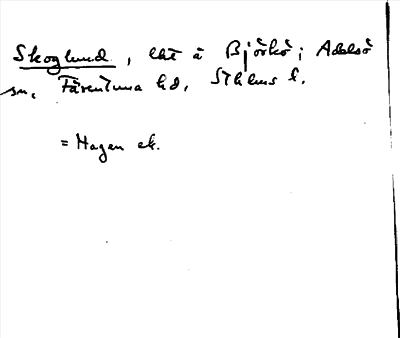 Skoglund, lht å Björkö i Adelsö
sn, Färentuna hd, Sthlms l.
= Hagen ek.